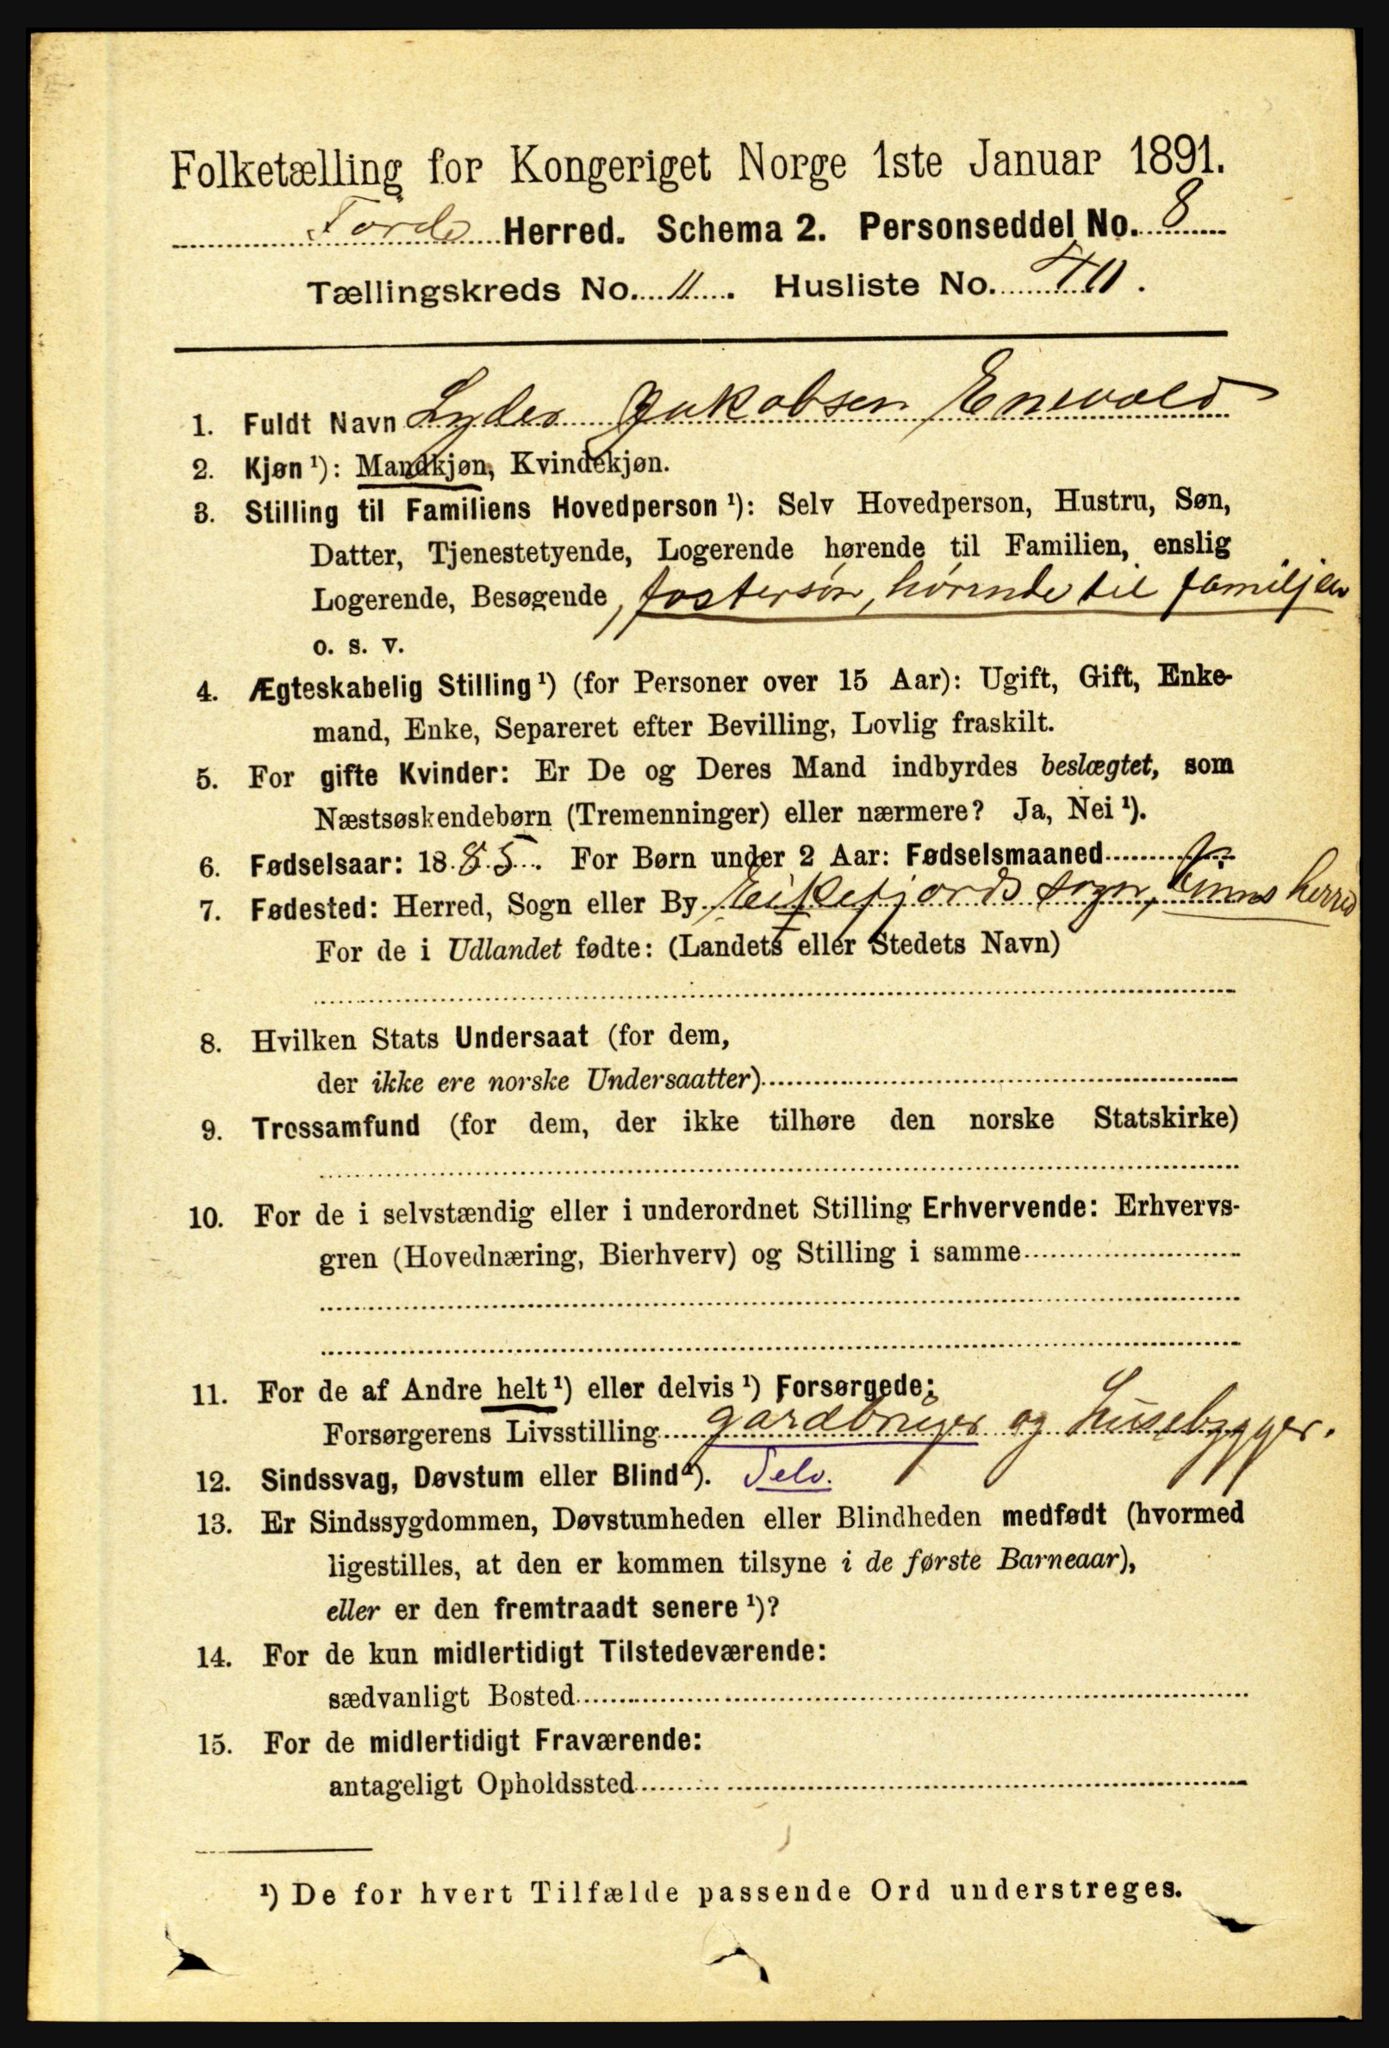 Folketælling for Kongeriget Norge 1ste Januar 1891.
Førde Herred. Schema 2. Personseddel No. 8
Tællingskreds No. 11. Husliste No. 40.
1. Fuldt Navn Lyder Jakobsen Enevold
2. Kjøn ¹): Mandkjøn, Kvindekjøn.
3. Stilling til Familiens Hovedperson ¹): Selv Hovedperson, Hustru, Søn,
Datter, Tjenestetyende, Logerende hørende til Familien, enslig
Logerende, Besøgende, fostersøn, hørende til familjen
o. s. v.
4. Ægteskabelig Stilling ¹) (for Personer over 15 Aar): Ugift, Gift, Enke-
mand, Enke, Separeret efter Bevilling, Lovlig fraskilt.
5. For gifte Kvinder: Er De og Deres Mand indbyrdes beslægtet, som
Næstsøskendebørn (Tremenninger) eller nærmere? Ja, Nei ¹).
6. Fødselsaar: 1885. For Børn under 2 Aar: Fødselsmaaned
7. Fødested: Herred, Sogn eller By Eikefjords sogn, Kinns herred
For de i Udlandet fødte: (Landets eller Stedets Navn)
8. Hvilken Stats Undersaat (for dem,
der ikke ere norske Undersaatter)
9. Trossamfund (for dem, der ikke tilhøre den norske Statskirke)
10. For de i selvstændig eller i underordnet Stilling Erhvervende: Erhvervs-
gren (Hovednæring, Bierhverv) og Stilling i samme
11. For de af Andre helt ¹) eller delvis ¹) Forsørgede:
Forsørgerens Livsstilling gardbruger og husebygger.
12. Sindssvag, Døvstum eller Blind ¹). Selv.
13. Er Sindssygdommen, Døvstumheden eller Blindheden medfødt (hvormed
ligestilles, at den er kommen tilsyne i de første Barneaar),
eller er den fremtraadt senere ¹)?
14. For de kun midlertidigt Tilstedeværende:
sædvanligt Bosted
15. For de midlertidigt Fraværende:
antageligt Opholdssted
¹) De for hvert Tilfælde passende Ord understreges.